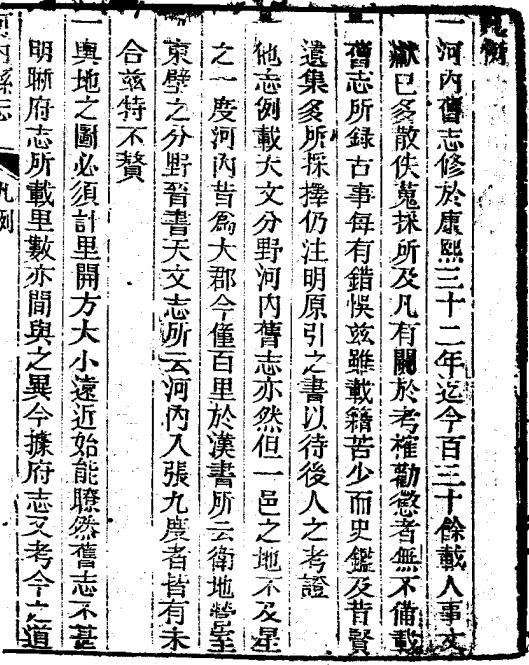 凡例
一河內舊志修於康熙三十二年迄今百三十餘載人事文
獻已多散佚蒐採所及凡有關於考槯勸懲者無不備載
一舊志所録古事每有錯悞玆雖載籍苦少而史鑑及昔賢
遺集多所採擇仍注明原引之書以待後人之考證
一他志例載天文分野河內舊志亦然但一邑之地不及星
之一度河內昔爲大郡今僅百里於漢書所云衛地營室
東壁之分野晉書天文志所云河內入張九度者皆有未
合玆特不贅
一輿地之圖必須計里開方大小遠近始能瞭然舊志不甚
明聮府志所載里數亦間與之異今據府志又考今之道
河內縣志
凡例